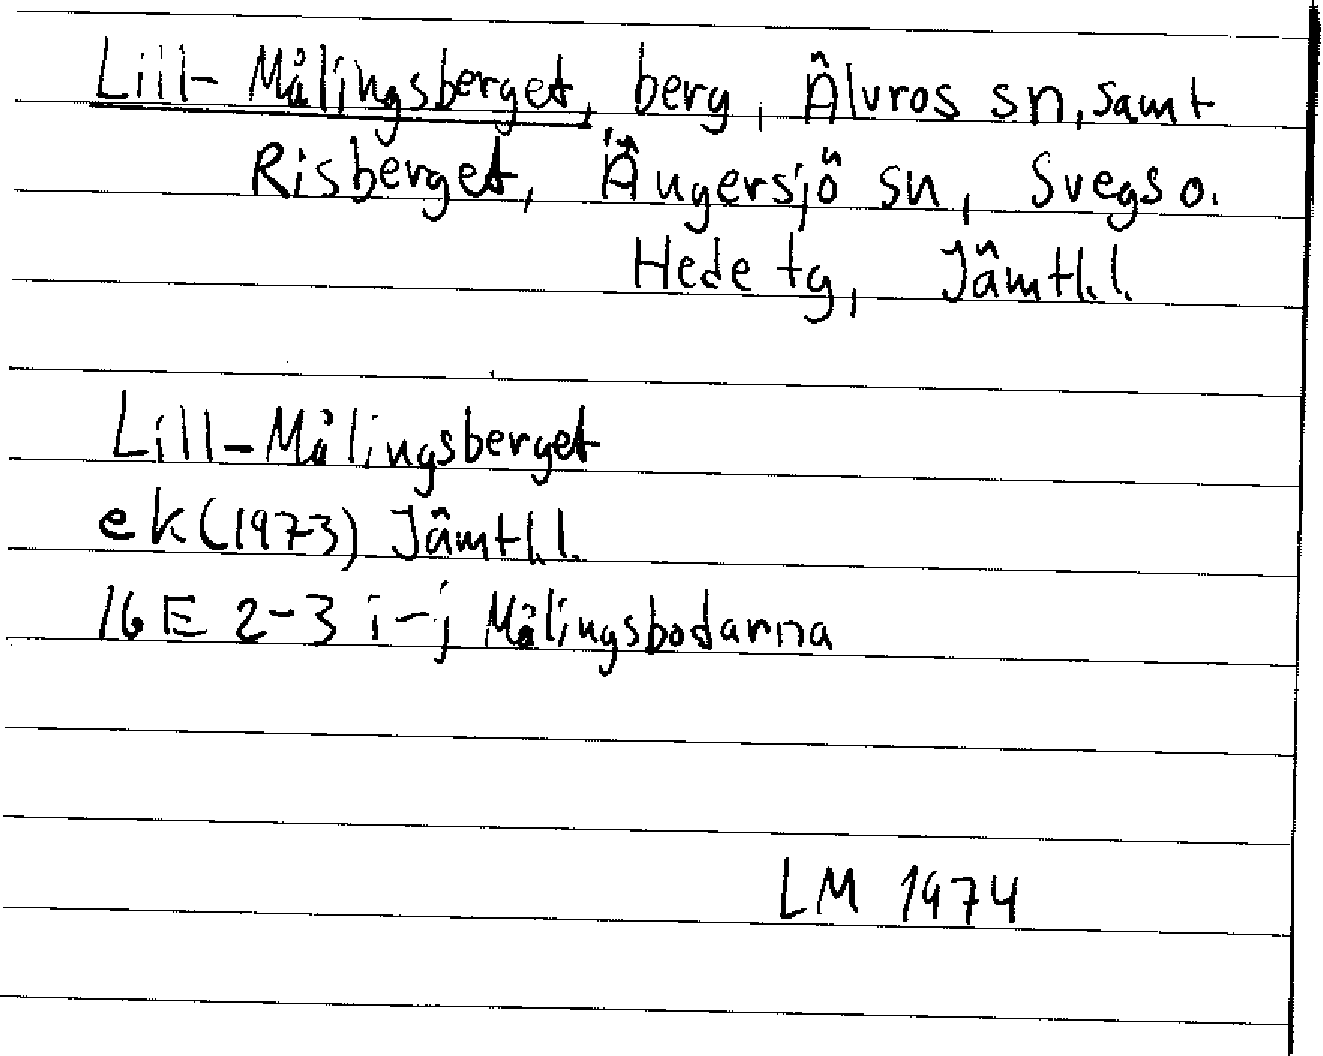 Lill-Målingsberget, berg, Älvros sn, samt
Risberget, Ängersjö sn, Svegs o.
Hede tg, Jämtl.l.
Lill-Målingsberget
ek(1973) Jämtl.l.
16E 2-3 i-j Målingsbodarna
LM 1974